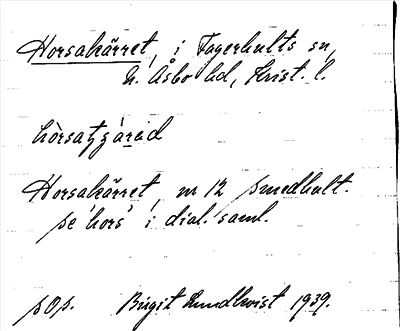 Horsakärret, i Fagerhults sn,
N. Åsbo hd, Krist. l.
Horsakärret, nr 12 Smedhult.
se 'hors' i dial. saml.
sOp. Birgit Lundkvist 1939.